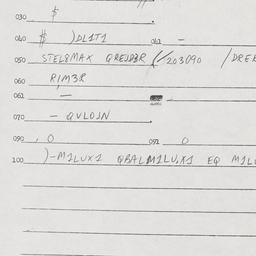 030 $
040 $ )DL1T1 041 –
050 STEL8MAX QREJD3R (/203090 /DREE
060 R1M3R
061 –
070 – QVLOJN
090 , 0 091 0
100 )–M1LUX1 QBALM1LUX1 EQ M1LU